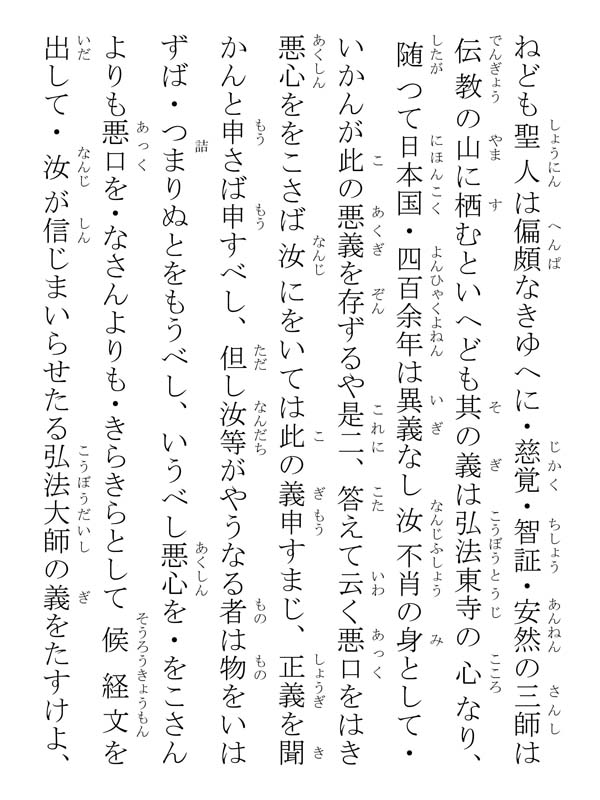 ねども聖人は偏頗なきゆへに・慈覚・智証・安然の三師は
伝教の山に栖むといへども其の義は弘法東寺の心なり、
随つて日本国・四百余年は異義なし汝不肖の身として・
いかんが此の悪義を存ずるや是二、答えて云く悪口をはき
悪心ををこさば汝にをいては此の義申すまじ、正義を聞
かんと申さば申すべし、但し汝等がやうなる者は物をいは
ずば・つまりぬとをもうべし、いうべし悪心を・をこさん
よりも悪口を・なさんよりも・きらきらとして候経文を
出して・汝が信じまいらせたる弘法大師の義をたすけよ、